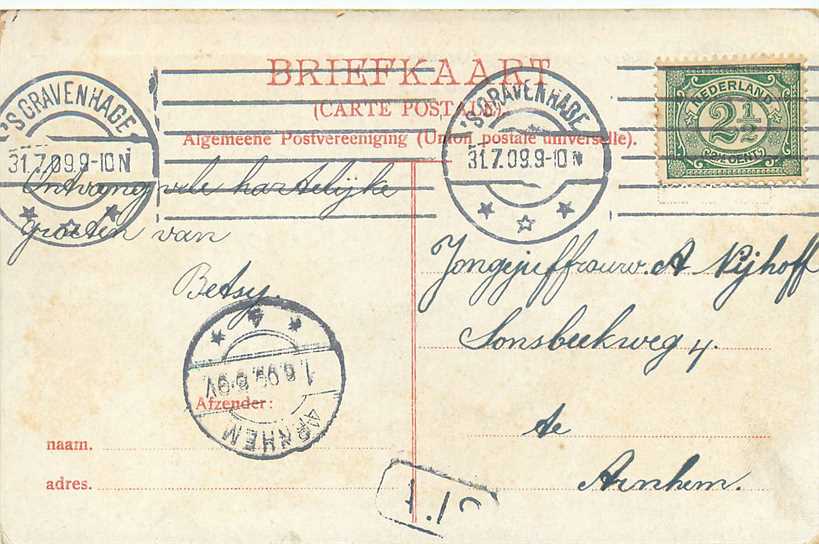 BRIEFKAART
(CARTE POSTALE)
Algemeene Postvereeniging (Union postale universelle).
'S GRAVENHAGE
31.7.09.9-10N
'S GRAVENHAGE
31.7.09.9-10N
NEDERLAND
2½
CENT
Ontvang vele hartelijke
groeten van
Betsy.
Jongejuffrouw. A Nijhoff
Sonsbeekweg 4.
te
Arnhem.
ARNHEM
Afzender:
naam.
adres.